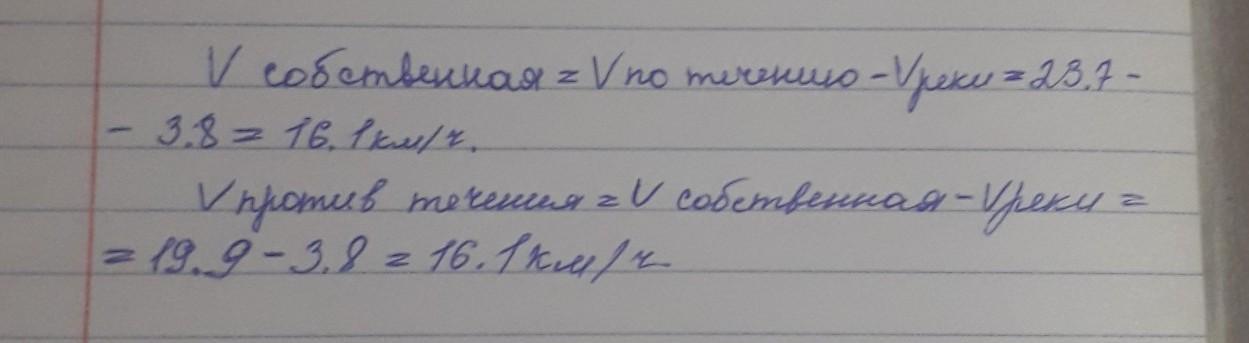 V собственная = V по течению - V реки = 23.7 -
- 3.8 = 16.1 км/ч.
V против течения = V собственная - V реки =
= 19.9 - 3.8 = 16.1 км/ч